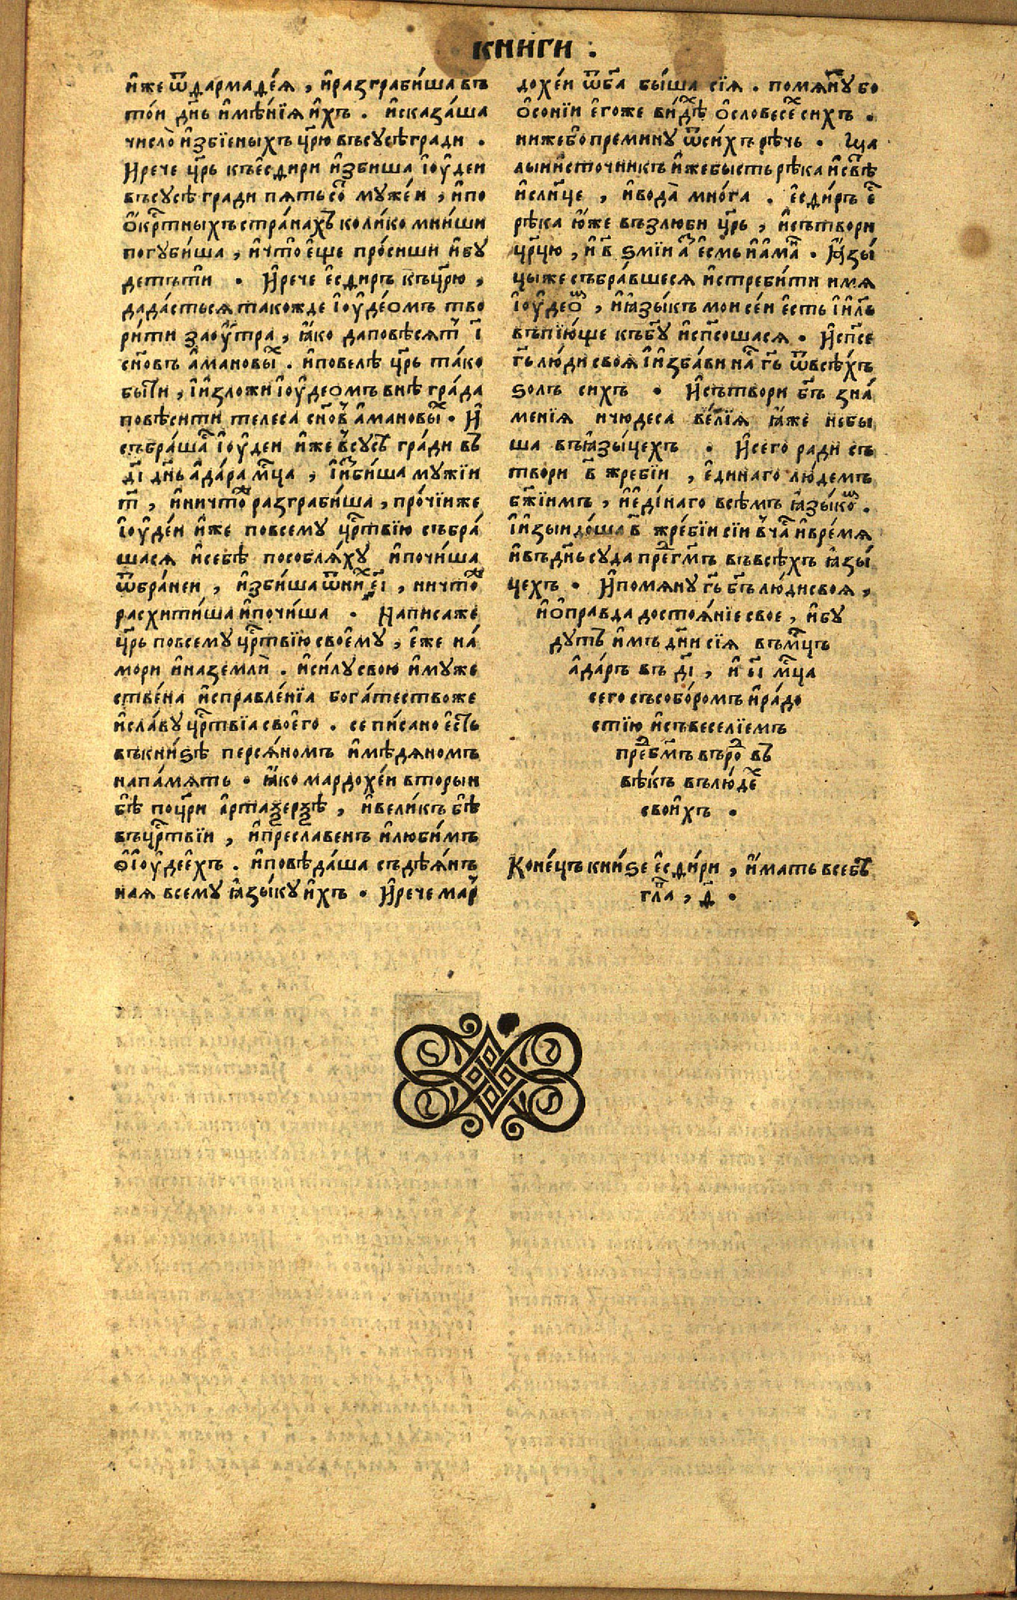 КНИГИ .
и҆́же ѿдармаде́а , и҆разграби́ша въ
то́и дн҃ь и҆мѣ́нїѧ и҆́хъ . и҆сказа́ша
число̀ и҆збїеныхъ цр҃ю въсусѣ гради .
И҆рече цр҃ь къе҆сдири и҆збиша і҆оу҆́деи
въсусѣ гради пѧтьсо̑ муже́и , и҆по
о҆́кр̑тныхъстра́нахъ коли́ко мни́ши
погуби́ша , и҆что̑е҆ще про́сиши и҆бу
детъти . И҆рече е҆сдиръ къцр҃ю ,
дада́стьсѧ такожде і҆оу҆́деѡмъ тво
ри́ти заоу҆́тра , ꙗ҆́ко даповѣсѧт̑ і҃
сн҃овъ а҆ма́новы̑ . и҆повелѣ̀ цр҃ь та́ко
бы́ти , і҆и҆зложи і҆оу҆́деѡмъ внѣ гра́да
повѣсити телеса сн҃ов̑ а҆ма́новы̑ . И҆
събра́ша̑ і҆оу҆́деи и҆́же в̾сусѣ гра́ди въ
д҃і дн҃ь а҆да́ра мц҃а , і҆и҆з̑би́ша му́жїи
т҃ , и҆ничто̑ разграби́ша , про́чїиже
і҆оу҆де́и и҆́же повсему цр̑твїю събра́
шасѧ и҆себѣ̀ пособлѧ́ху и҆почи́ша
ѿбра́неи , и҆збиша ѿни̑ е҃і , ничто̑
расхити́ша и҆почи́ша . Написаже
цр҃ь повсему цр̑твїю свое҆му , е҆же на́
мори и҆наземлѝ . и҆си́лу свою и҆муже
стве́на и҆справле́нїа бога́тествоже
и҆сла́ву цр̑твїа своего . се пи́сано е҆́сть
въкни́ѕѣ персѧ́номъ и҆мѣ́дѧномъ
напа́мѧть . ꙗ҆́ко мардохе́и вторыи
бѣ̀ поцр҃и а҆ртаѯерѯѣ , и҆вели́къ бѣ̀
въцр̑твїи , и҆пресла́венъ и҆люби́мъ
ѿі҆оу҆де́е҆хъ . и҆повѣ́даша съдѣѧ́нъ
наѧ всему ꙗ҆зы́ку и҆́хъ . И҆рече мар̑
дохе́и ѿб҃а бы́ша сїѧ . помѧну̑ бо
о҆со́нїи е҆го́же ви́дѣ̑ о҆словесе̑ сихъ .
ниже́бо премину ѿси́хъ рѣчь . Ма
лыи и҆сточникъ и҆́жебысть рѣка и҆свѣ̑
и҆слн҃це , и҆вода̀ мно́га . е҆сди́ръ е҆̑
рѣка ю҆́же възлюби цр҃ь , и҆сътвори
цр҃цю , и҆в҃ ѕмі́и а̑ е҆́смь и҆а҆ма̑ . И҆ꙗ҆зы́
цыже събра́вшесѧ и҆стреби́ти имѧ
і҆оу҆́део̑ , и҆ꙗ҆зы́къ мои се́и е҆сть і҆и҆л҃ь
въпїю́ще къбг҃у и҆сп҃сошасѧ . И҆сп҃се
гь҃ лю́ди своѧ̀ і҆и҆зба́ви на̑ гь҃ ѿвсѣ́хъ
ѕолъ сихъ . И҆сътвори бг҃ъ зна́
менїѧ ичюдеса ве́лїѧ ꙗ҆́же небы
ша въꙗ҆зы́цехъ . И҆сего ради съ
твори в҃ жребїи , е҆ди́наго лю́демъ
бж҃їимъ , и҆е҆ді́наго всѣмъ ꙗ҆зы́ко̑ .
і҆и҆зыидо́ша в҃ жре́бїи сїи в̾ча̑ и҆вре́мѧ
и҆въдн҃ь суда пре̑гм҃ъ въвсѣхъ ꙗ҆зы́
цехъ . И҆помѧну гь҃ бг҃ъ лю́ди своѧ ,
и҆о҆правда достоѧ́нїе свое , и҆бу
дутъ и҆́мъ дн҃и сїѧ въмц҃ъ
а҆даръ въ д҃і , и҆ е҃і мц҃а
сего съсобо́ромъ и҆ра́до
стїю и҆съвеселїемъ
пре̑бг҃мъ въро̑ въ
вѣ́къ въ лю́де̑
свои҆хъ .
Коне́цъ кни́ѕе е҆сди́ри , и҆́мать всебѣ̀
гл҃а , д҃ .